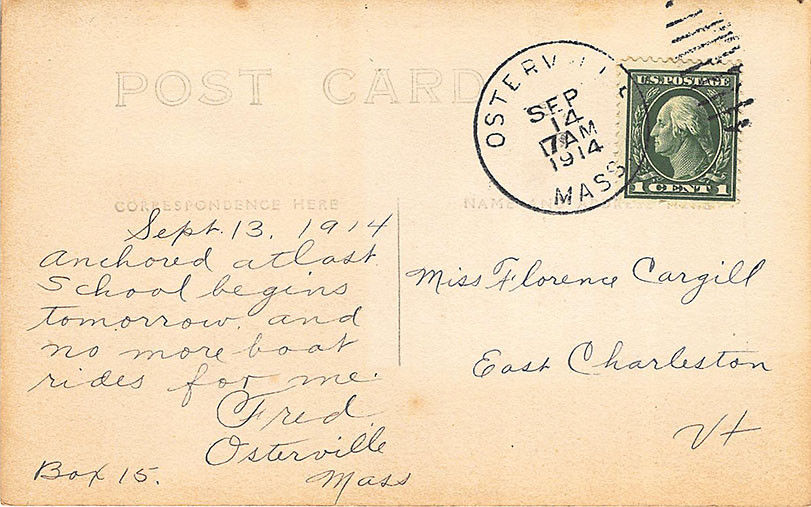 POST CARD
OSTERVILLE
SEP
14
7 AM
1914
MASS
U.S. POSTAGE
1 CENT 1
CORRESPONDENCE HERE
Sept. 13, 1914
Anchored at last
School begins
tomorrow, and
no more boat
rides for me.
Fred
Osterville
Box 15. Mass
NAME AND ADDRESS HERE
Miss Florence Cargill
East Charleston
Vt